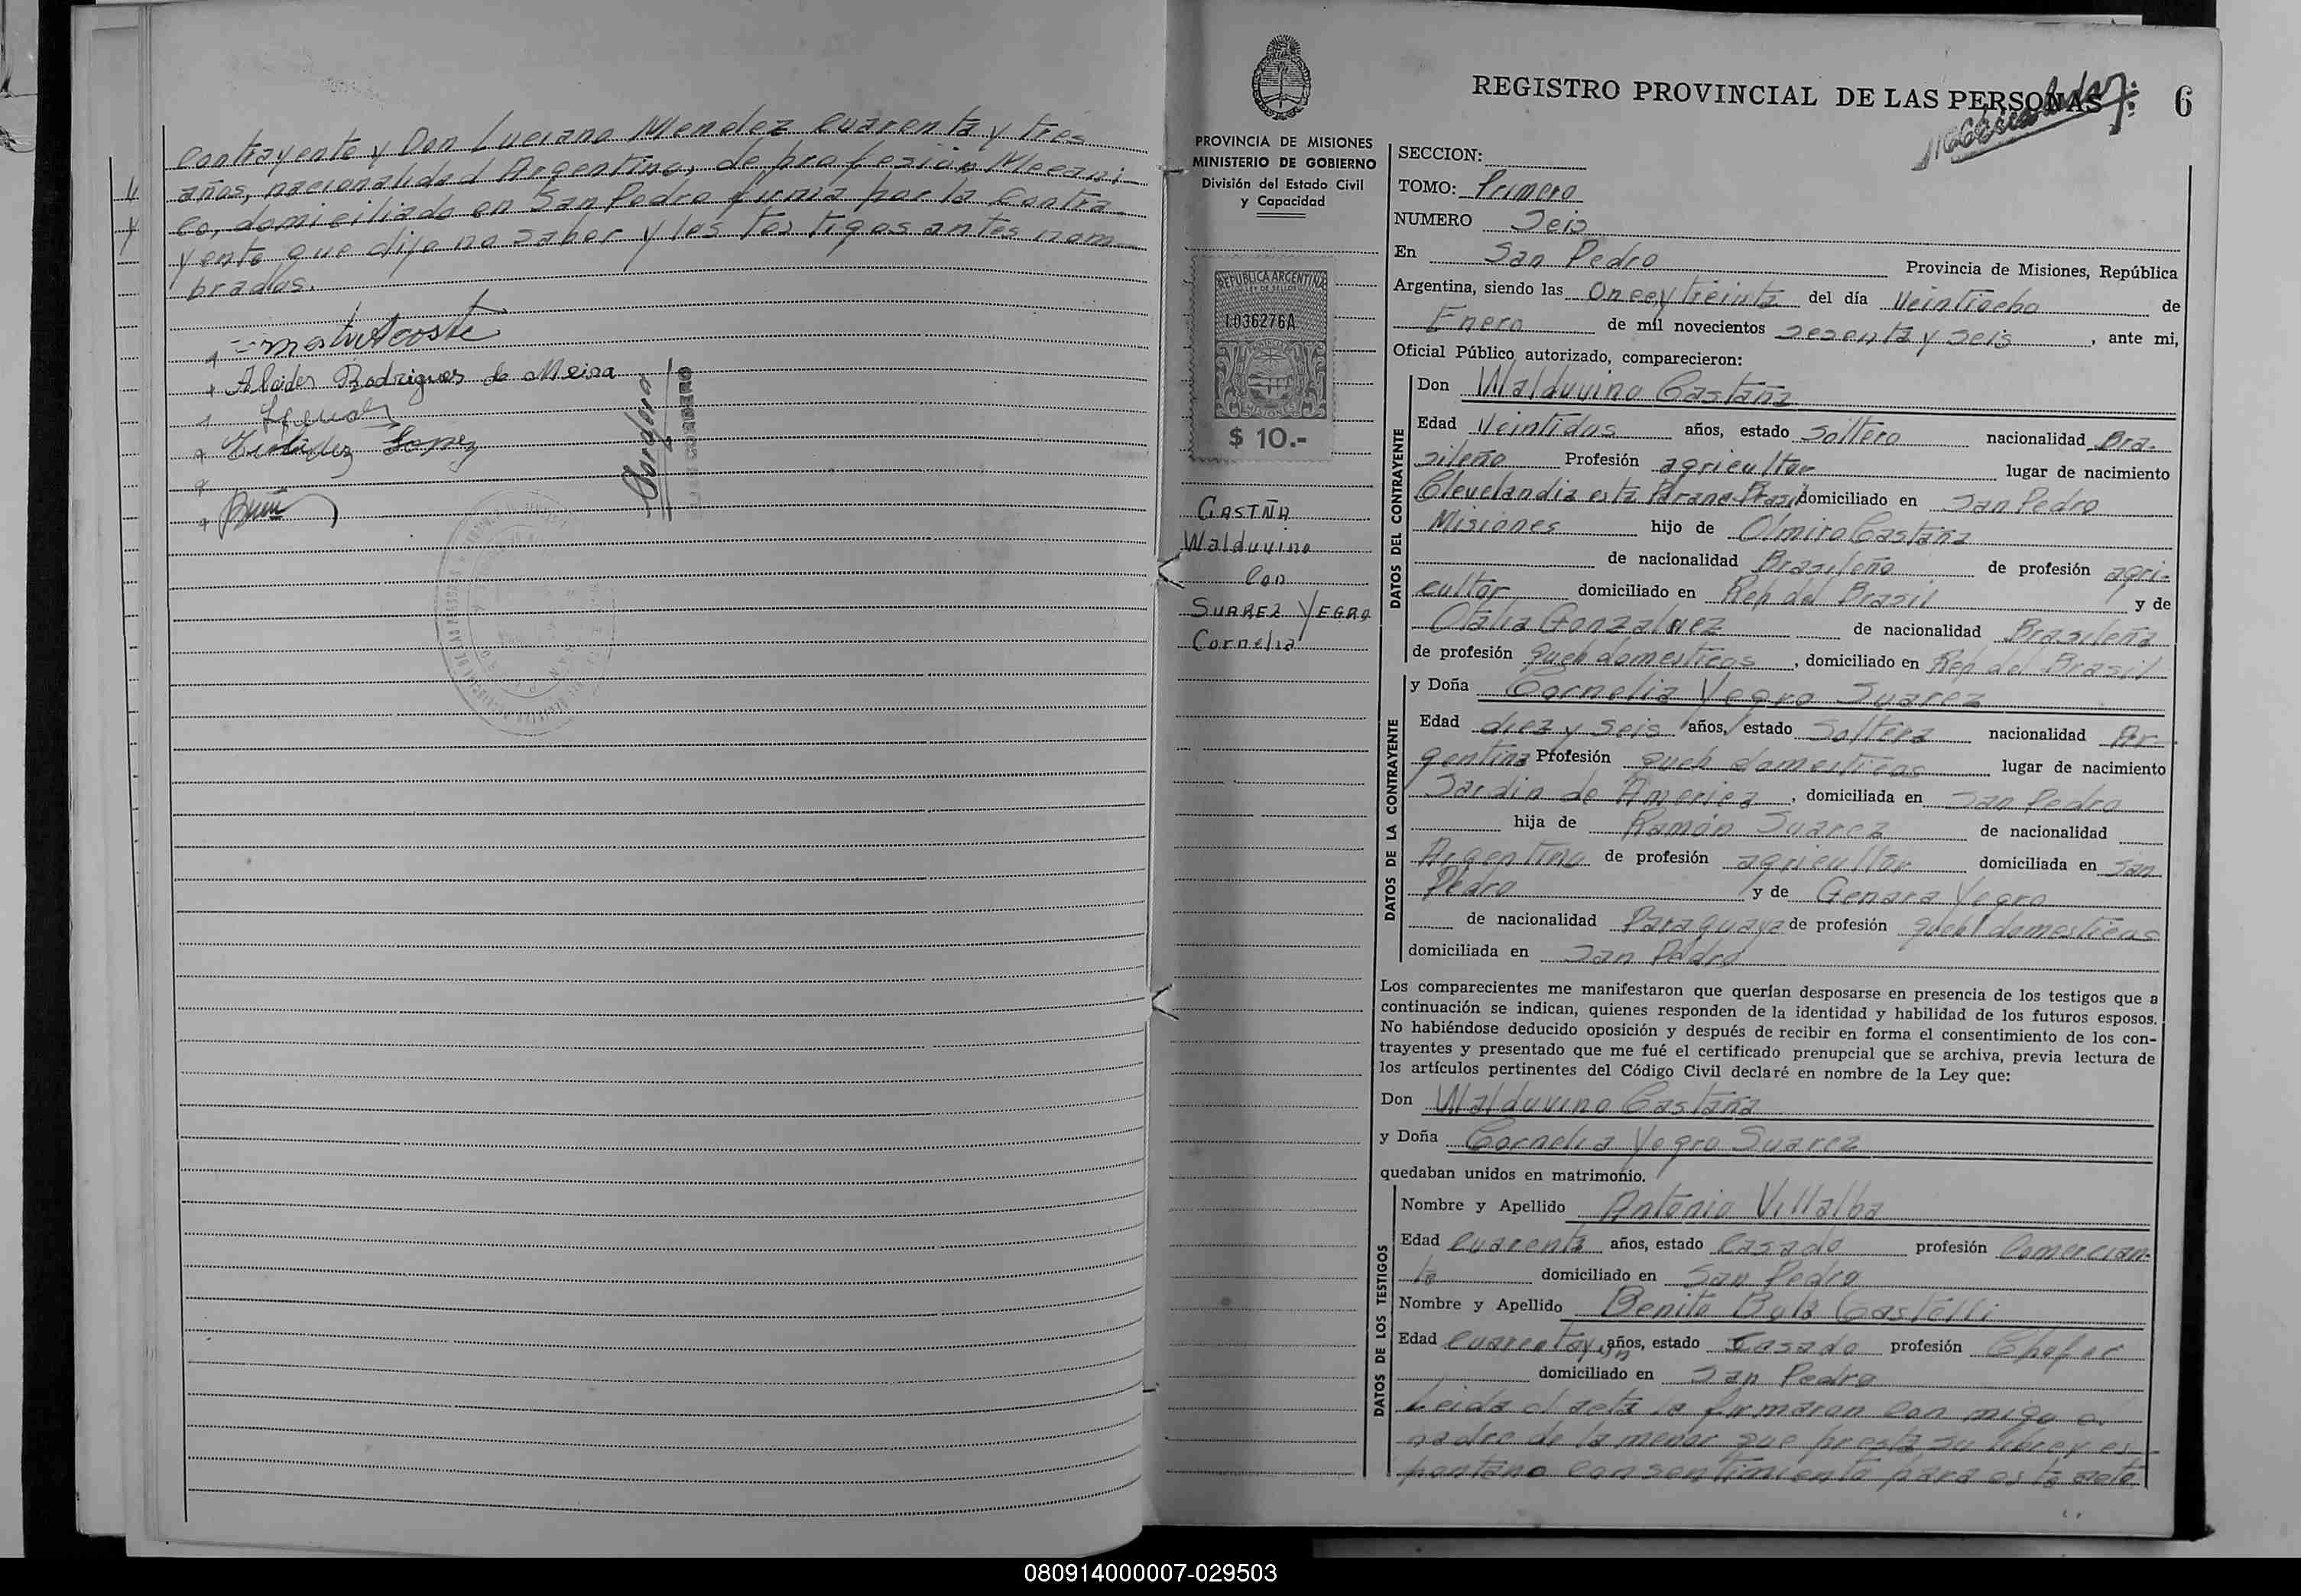 contrayente y Don Luciano Mendez cuarenta y tres
años, nacionalidad Argentino, de profesión Mecani-
co, domiciliado en San Pedro firma por la contra-
yente que dijo no saber y los testigos antes nom-
brados.
Alcides Rodrigues de Meira
Lopez
Cordero
CORDERO
REGISTRO PROVINCIAL DE LAS PERSONAS
6
PROVINCIA DE MISIONES
MINISTERIO DE GOBIERNO
División del Estado Civil
y Capacidad
REPUBLICA ARGENTINA
LEY DE SELLOS
1036276A
MISIONES
$ 10.-
CASTÑA
Walduvino
Con
SUAREZ YEGRO
Cornelia
SECCION:
TOMO: Primero
NUMERO Seis
En San Pedro Provincia de Misiones, República
Argentina, siendo las Once y treinta del día Veintiocho de
Enero de mil novecientos sesenta y seis, ante mi,
Oficial Público autorizado, comparecieron:
DATOS DEL CONTRAYENTE
Don Walduvino Castaña
Edad Veintidos años, estado Soltero nacionalidad Bra-
sileño Profesión agricultor lugar de nacimiento
Clevelandia esta Parana Brasil domiciliado en San Pedro
Misiones hijo de Olmiro Castaña
de nacionalidad Brasileño de profesión agri-
cultor domiciliado en Rep del Brasil y de
Otalia Gonzalvez de nacionalidad Brasileña
de profesión queh domesticos, domiciliado en Rep del Brasil
DATOS DE LA CONTRAYENTE
y Doña Cornelia Yegro Suarez
Edad diez y seis años, estado Soltera nacionalidad Ar
gentina Profesión queh domesticos lugar de nacimiento
Jardin de America, domiciliada en San Pedro
hija de Ramón Suarez de nacionalidad
Argentino de profesión agricultor domiciliada en San
Pedro y de Genara Yegro
de nacionalidad Paraguaya de profesión queh domesticos
domiciliada en San Pedro
Los comparecientes me manifestaron que querían desposarse en presencia de los testigos que a
continuación se indican, quienes responden de la identidad y habilidad de los futuros esposos.
No habiéndose deducido oposición y después de recibir en forma el consentimiento de los con-
trayentes y presentado que me fué el certificado prenupcial que se archiva, previa lectura de
los artículos pertinentes del Código Civil declaré en nombre de la Ley que:
Don Walduvino Castaña
y Doña Cornelia Yegro Suarez
quedaban unidos en matrimonio.
DATOS DE LOS TESTIGOS
Nombre y Apellido Antonio Villalba
Edad Cuarenta años, estado Casado profesión Comercian-
te domiciliado en San Pedro
Nombre y Apellido Benito Castelli
Edad cuarentay un años, estado Casado profesión Chofer
domiciliado en San Pedro
Leida el acta la firmaron con migo
padre de la menor que presta su libre y es-
pontano consentimiento para este acto
080914000007-029503